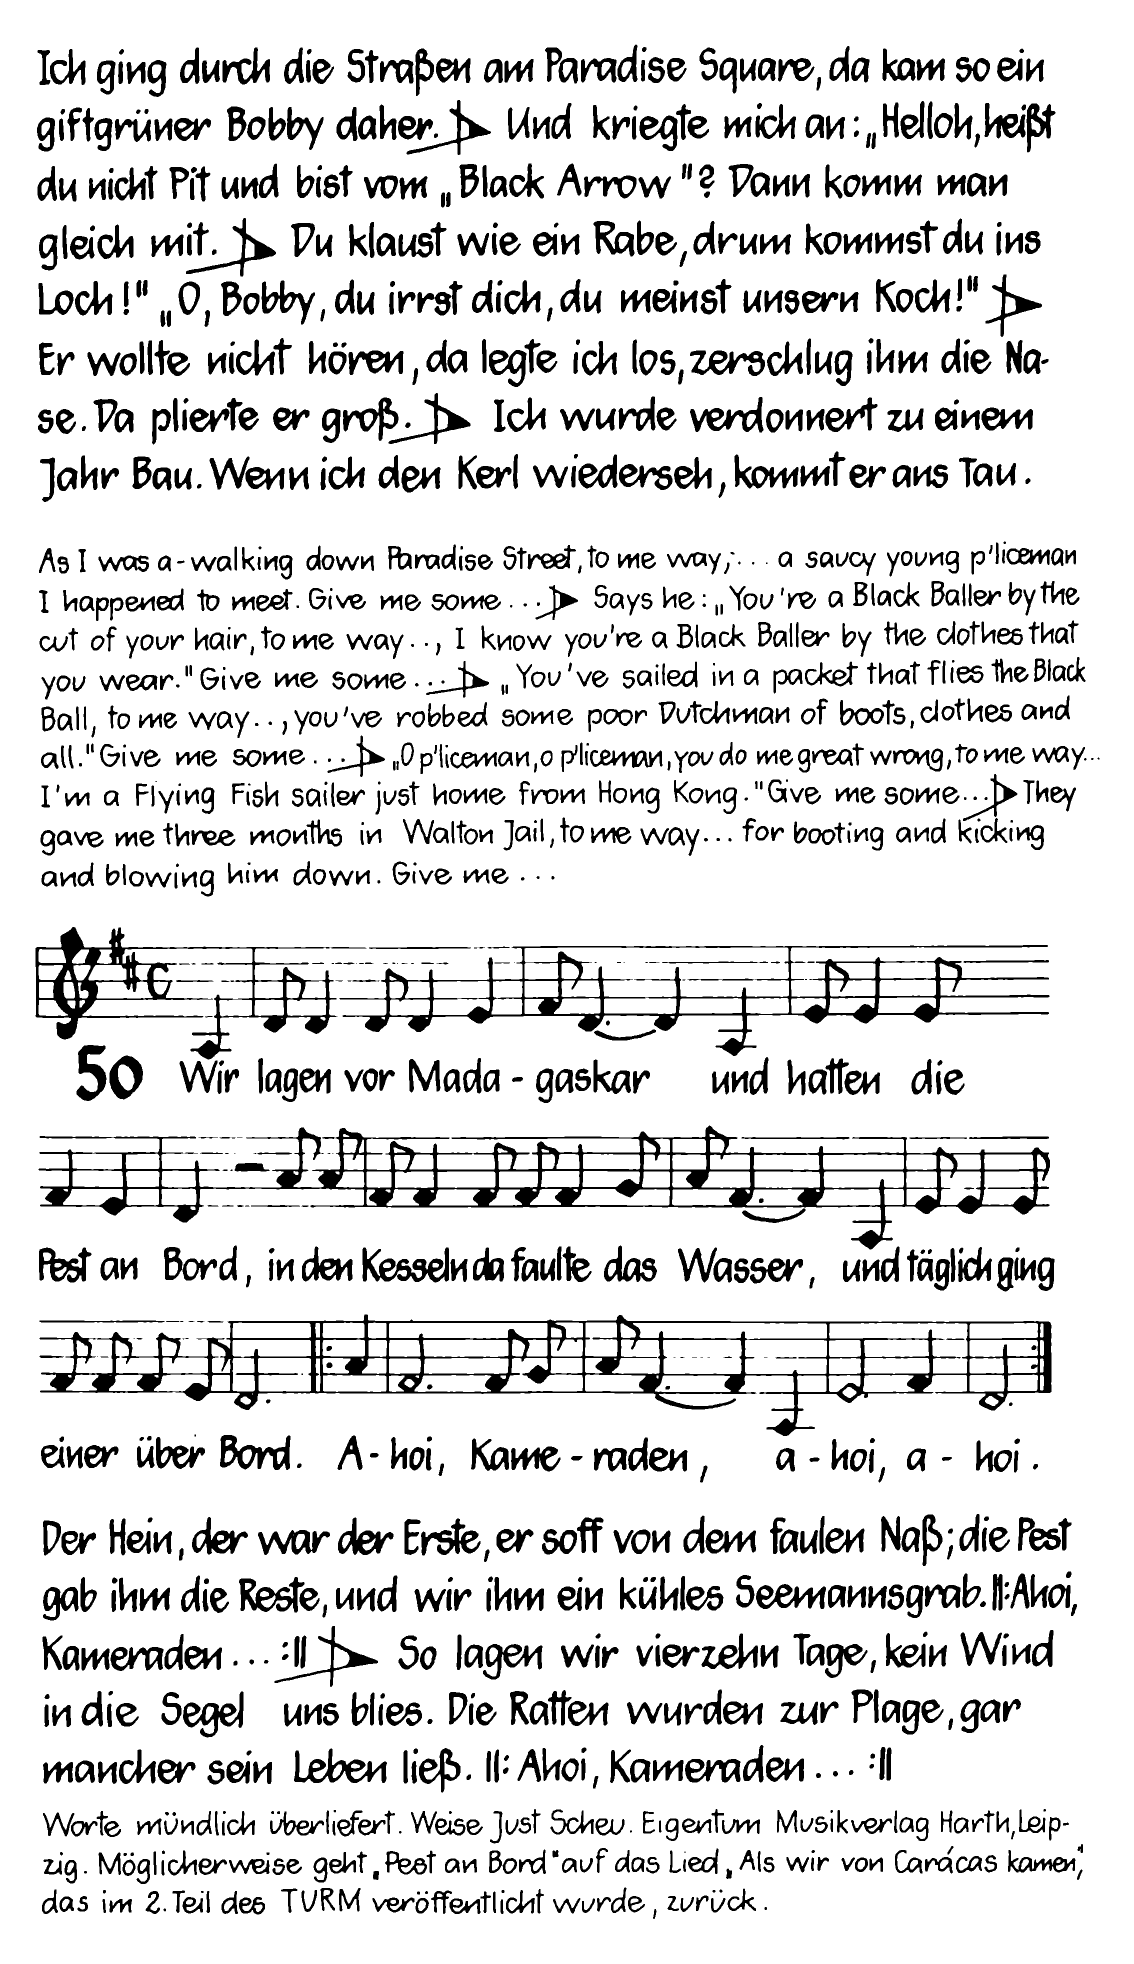 Ich ging durch die Straßen am Paradise Square, da kam so ein
giftgrüner Bobby daher. Und kriegte mich an: „Helloh, heißt
du nicht Pit und bist vom „Black Arrow"? Dann komm man
gleich mit. Du klaust wie ein Rabe, drum kommst du ins
Loch!" „O, Bobby, du irrst dich, du meinst unsern Koch!"
Er wollte nicht hören, da legte ich los, zerschlug ihm die Na-
se. Da plierte er groß. Ich wurde verdonnert zu einem
Jahr Bau. Wenn ich den Kerl wiederseh, kommt er ans Tau.
As I was a-walking down Paradise Street, to me way, ... a saucy young p'liceman
I happened to meet. Give me some ... Says he: „You're a Black Baller by the
cut of your hair, to me way .., I know you're a Black Baller by the clothes that
you wear." Give me some ... „You've sailed in a packet that flies the Black
Ball, to me way .., you've robbed some poor Dutchman of boots, clothes and
all." Give me some ... „O p'liceman, o p'liceman, you do me great wrong, to me way...
I'm a Flying Fish sailer just home from Hong Kong." Give me some... They
gave me three months in Walton Jail, to me way... for booting and kicking
and blowing him down. Give me ...
50 Wir lagen vor Mada - gaskar und hatten die
Pest an Bord, in den Kesseln da faulte das Wasser, und täglich ging
einer über Bord. A - hoi, Kame - raden, a - hoi, a - hoi.
Der Hein, der war der Erste, er soff von dem faulen Naß; die Pest
gab ihm die Reste, und wir ihm ein kühles Seemannsgrab. ||: Ahoi,
Kameraden ... :|| So lagen wir vierzehn Tage, kein Wind
in die Segel uns blies. Die Ratten wurden zur Plage, gar
mancher sein Leben ließ. ||: Ahoi, Kameraden ... :||
Worte mündlich überliefert. Weise Just Scheu. Eigentum Musikverlag Harth, Leip-
zig. Möglicherweise geht „Pest an Bord" auf das Lied „Als wir von Carácas kamen",
das im 2. Teil des TURM veröffentlicht wurde, zurück.